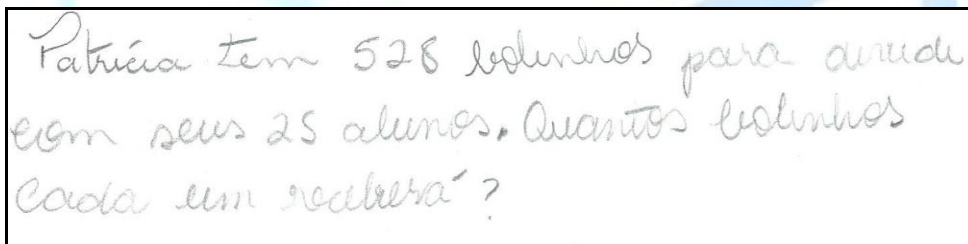 Patrícia tem 528 bolinhos para dividi
com seus 25 alunos. Quantos bolinhos
cada um receberá?